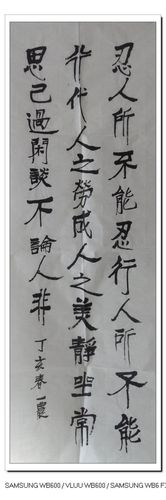 忍人所不能忍行人所不能
行代人之勞成人之美靜坐常
思己過閑談不論人非 丁亥春
SAMSUNG WB600 / VLUU WB600 / SAMSUNG WB6